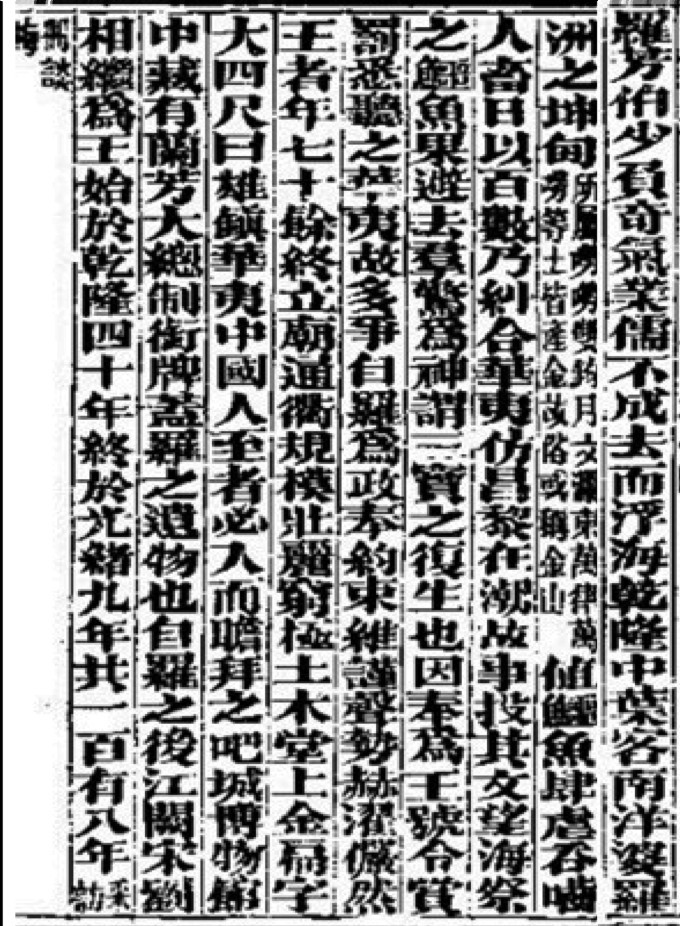 羅芳伯少負奇氣業儒不成去而浮海乾隆中葉客南洋婆羅
洲之坤甸
所屬
勞等土皆產金故俗或稱金山
月
東萬律萬
値鱷魚肆虐吞噬
人畜日以百數乃糾合華夷仿昌黎在潮故事投其文望海祭
之鱷魚果避去羣驚爲神謂三寶之復生也因奉爲王號令賞
罰悉聽之華夷故多爭自羅爲政奉約束維謹聲勢赫濯儼然
王者年七十餘終立廟通衢規模壯麗窮極土木堂上金扁字
大四尺曰雄鎭華夷中國人至者必入而瞻拜之吧城博物館
中藏有蘭芳大總制銜牌蓋羅之遺物也自羅之後江闕宋劉
相繼爲王始於乾隆四十年終於光緒九年共一百有八年
采
訪
談
梅